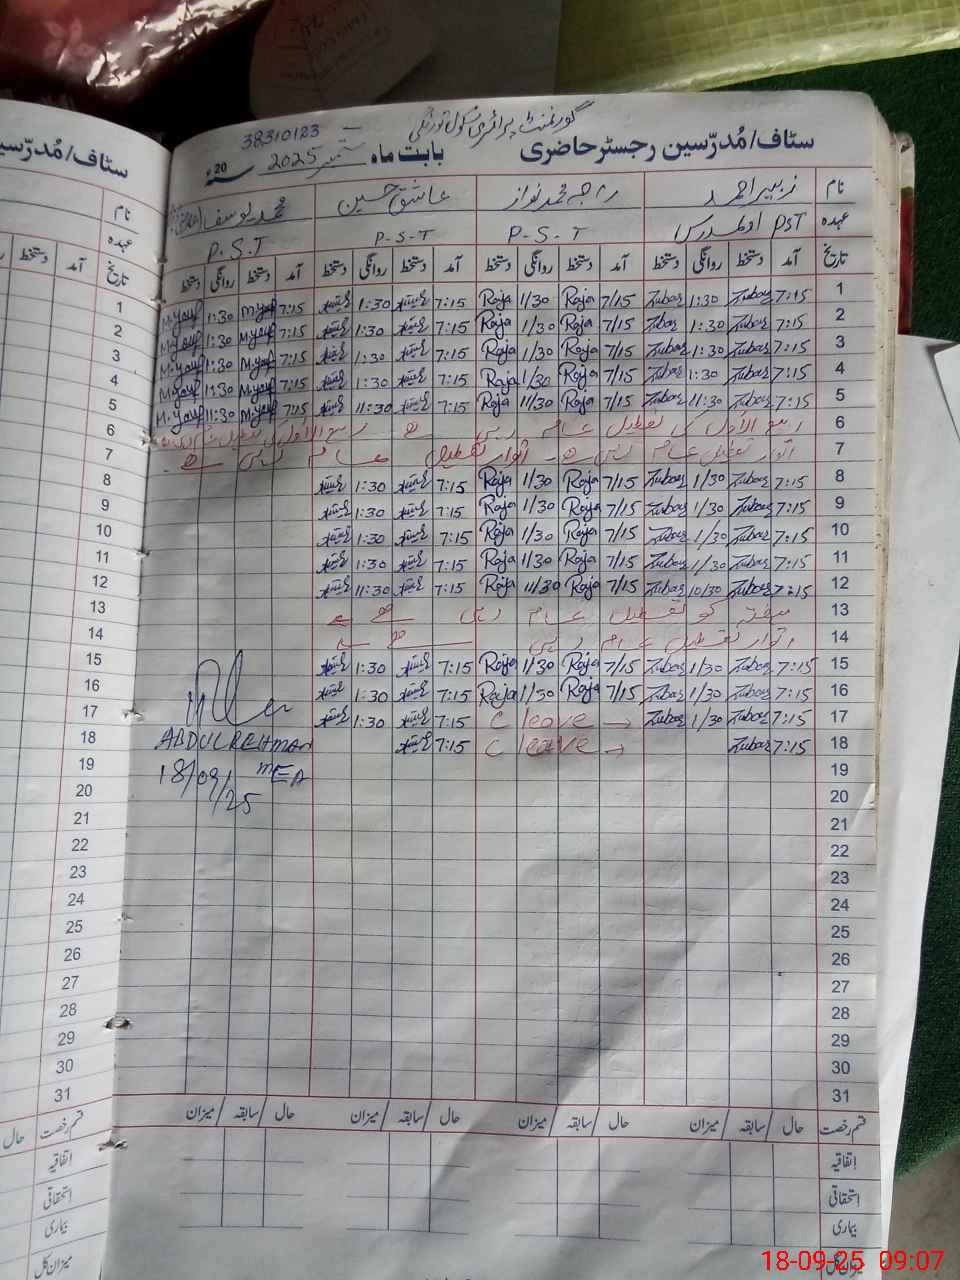 گورنمنٹ پرائمری سکول
38310123
سٹاف/مُدرّسین رجسٹر حاضری بابت ماہ ستمبر 2025 سنہ 20ء
نام زبیر احمد راجہ محمد نواز عاشق حسین محمد یوسف
عہدہ PST اول مدرس P.S.T P.S.T P.S.T
تاریخ آمد دستخط روانگی دستخط آمد دستخط روانگی دستخط آمد دستخط روانگی دستخط آمد دستخط روانگی دستخط
1 7:15 Zubar 1:30 Zubar 7/15 Roja 1/30 Roja 7:15 1:30 7:15 M.yousf 1:30 M.yousf
2 7:15 Zubar 1:30 Zubar 7/15 Roja 1/30 Roja 7:15 1:30 7:15 M.yousf 1:30 M.yousf
3 7:15 Zubar 1:30 Zubar 7/15 Roja 1/30 Roja 7:15 1:30 7:15 M.yousf 1:30 M.yousf
4 7:15 Zubar 1:30 Zubar 7/15 Roja 1/30 Roja 7:15 1:30 7:15 M.yousf 1:30 M.yousf
5 7:15 Zubar 11:30 Zubar 7/15 Roja 11/30 Roja 7:15 11:30 7:15 M.yousf 11:30 M.yousf
6 ربیع الاول کی تعطیل عام رہی ہے ربیع الاول کی تعطیل
7 اتوار تعطیل عام رہی ہے۔ اتوار تعطیل عام رہی ہے۔
8 7:15 Zubar 1/30 Zubar 7/15 Roja 1/30 Roja 7:15 1:30
9 7:15 Zubar 1/30 Zubar 7/15 Roja 1/30 Roja 7:15 1:30
10 7:15 Zubar 1/30 Zubar 7/15 Roja 1/30 Roja 7:15 1:30
11 7:15 Zubar 1/30 Zubar 7/15 Roja 1/30 Roja 7:15 1:30
12 7:15 Zubar 10/30 Zubar 7/15 Roja 11/30 Roja 7:15 11:30
13 ہفتہ کو تعطیل عام رہی ہے
14 اتوار تعطیل عام رہی ہے
15 7:15 Zubar 1/30 Zubar 7/15 Roja 1/30 Roja 7:15 1:30
16 7:15 Zubar 1/30 Zubar 7/15 Roja 1/30 Roja 7:15 1:30
17 7:15 Zubar 1/30 Zubar C leave → 7:15 1:30
18 7:15 Zubar C leave → 7:15
ABDUL REHMAN
MEA
18/09/25
19
20
21
22
23
24
25
26
27
28
29
30
31
قسم رخصت حال / سابقہ / میزان حال / سابقہ / میزان حال / سابقہ / میزان حال / سابقہ / میزان
اتفاقیہ
استحقاقی
بیماری
میزان کل
سٹاف/مُدرّسین
نام
عہدہ
تاریخ آمد دستخط
1
2
3
4
5
6
7
8
9
10
11
12
13
14
15
16
17
18
19
20
21
22
23
24
25
26
27
28
29
30
31
قسم رخصت حال
اتفاقیہ
استحقاقی
بیماری
میزان کل
18-09-25 09:07